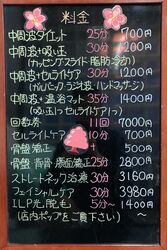 料金
中周波ダイエット 25分 700円
中周波+吸い玉 30分 1200円
(カッピングスライド 脂肪冷却)
中周波+セルライトケア 30分 1200円
(ガルバニック ラジオ波 ハンドマッサージ)
中周波+温浴マット 35分 1400円
(吸い玉orセルライトケア)
回数券 11回 7000円
セルライトケア 10分 700円
骨盤矯正 + 500円
骨盤 背骨 顔面矯正 25分 2800円
ストレートネック治療 30分 3160円
フェイシャルケア 30分 3980円
ILP光脱毛 5分〜 1400円
(店内ポップをご覧下さい) 〜